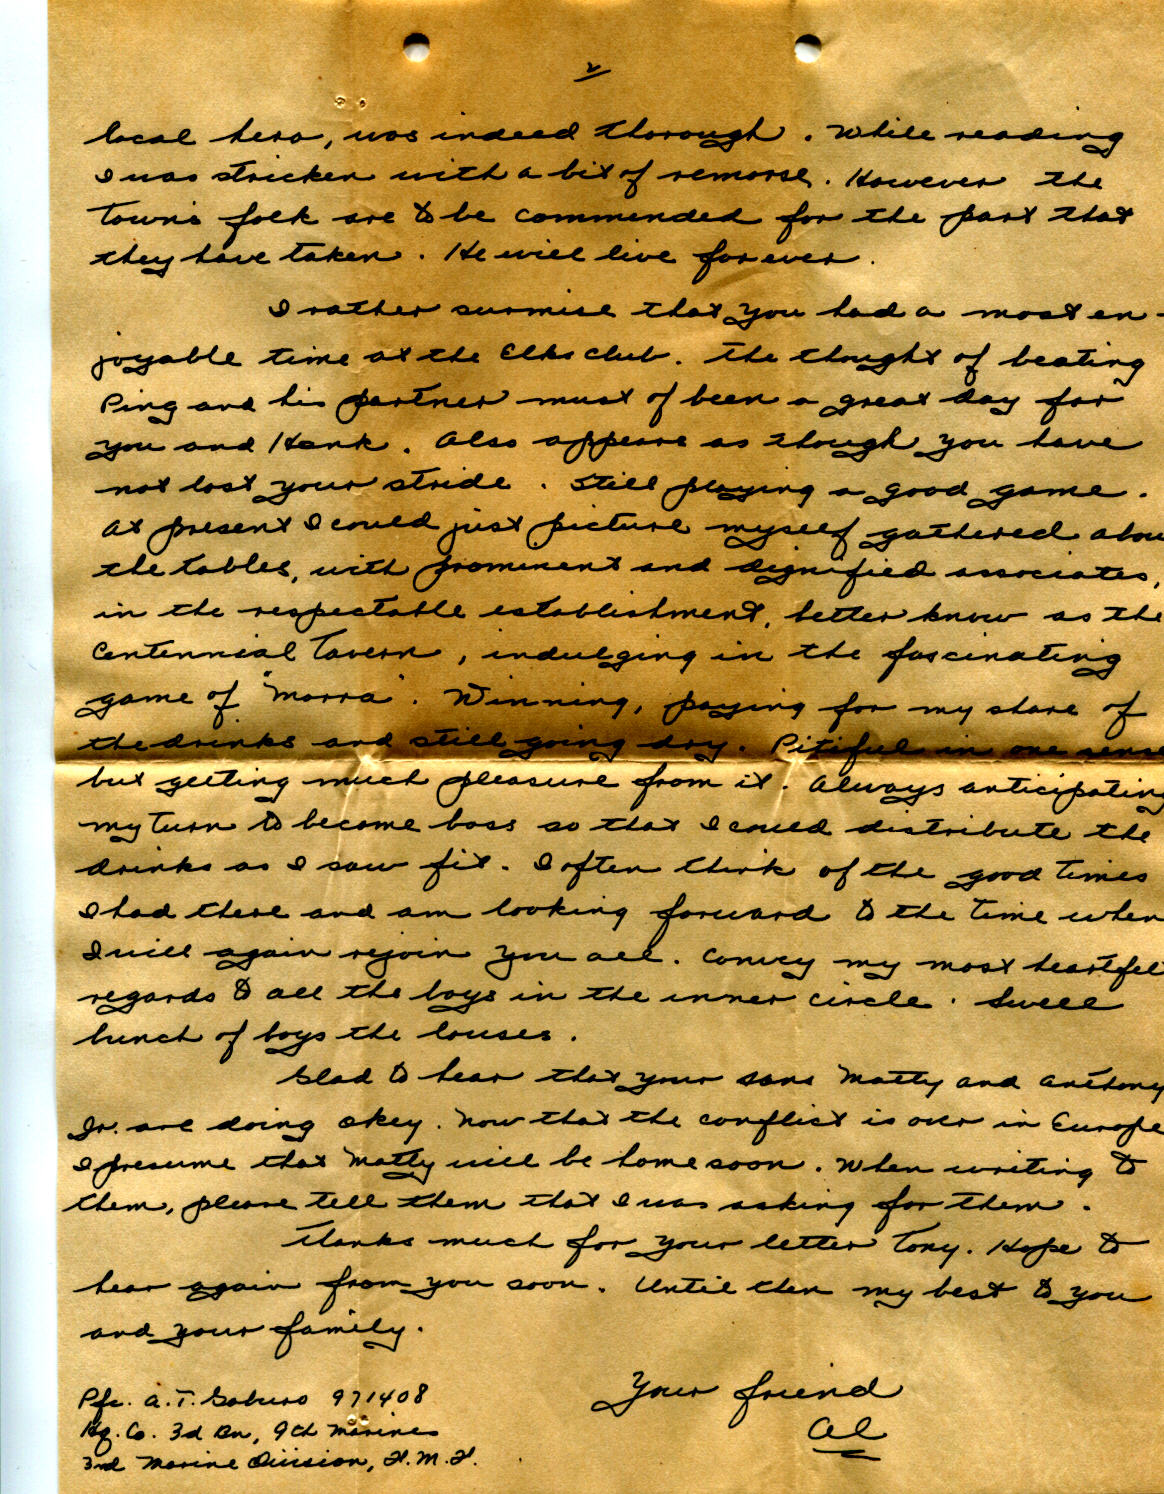 2
local hero, was indeed thorough. While reading
I was stricken with a bit of remorse. However the
town's folk are to be commended for the part that
they have taken. He will live forever.
I rather surmise that you had a most en-
joyable time at the Elks club. The thought of beating
Ping and his partner must of been a great day for
you and Hank. Also appears as though you have
not lost your stride. Still playing a good game.
At present I could just picture myself gathered abou
the tables, with prominent and dignified associates,
in the respectable establishment, better know as the
Centennial Tavern, indulging in the fascinating
game of "Morra". Winning, paying for my share of
the drinks and still going dry. Pitiful in one sense
but getting much pleasure from it. Always anticipating
my turn to become boss so that I could distribute the
drinks as I saw fit. I often think of the good times
I had there and am looking forward to the time when
I will again rejoin you all. Convey my most heartfel
regards to all the boys in the inner circle. Swell
bunch of boys the louses.
Glad to hear that your sons Matty and Anthony
Jr. are doing okey. Now that the conflict is over in Europe
I presume that Matty will be home soon. When writing to
them, please tell them that I was asking for them.
Thanks much for your letter Tony. Hope to
hear again from you soon. Until then my best to you
and your family.
Your friend
Al
Pfc. A.T. 971408
Hq. Co. 3d Bn, 9th Marines
3rd Marine Division, F.M.F.